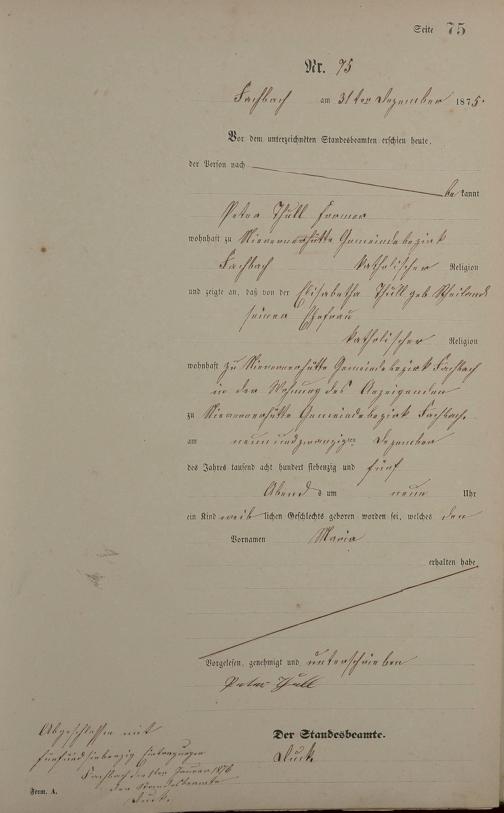 Seite 75
Nr. 75
Fachbach am 31ten Dezember 1875.
Vor dem unterzeichneten Standesbeamten erschien heute,
der Person nach
bekannt
Peter Thull Former
wohnhaft zu Nievernerhütte Gemeindebezirk
Fachbach katholischer Religion
und zeigte an, daß von der Elisabetha Thull geb
seiner Ehefrau
katholischer Religion
wohnhaft zu Nievernerhütte Gemeindebezirk Fachbach
in der Wohnung des Anzeigenden
zu Nievernerhütte Gemeindebezirk Fachbach.
am neunundzwanzigten Dezember
des Jahres tausend acht hundert siebenzig und fünf
Abends um neun Uhr
ein Kind weiblichen Geschlechts geboren worden sei, welches den
Vornamen Maria
erhalten habe
Vorgelesen, genehmigt und unterschrieben
Peter Thull
Der Standesbeamte.
Abgeschlossen mit
fünfundsiebenzig Eintragungen
Fachbach den 1ten Januar 1876
Der Standesbeamte
Form. A.